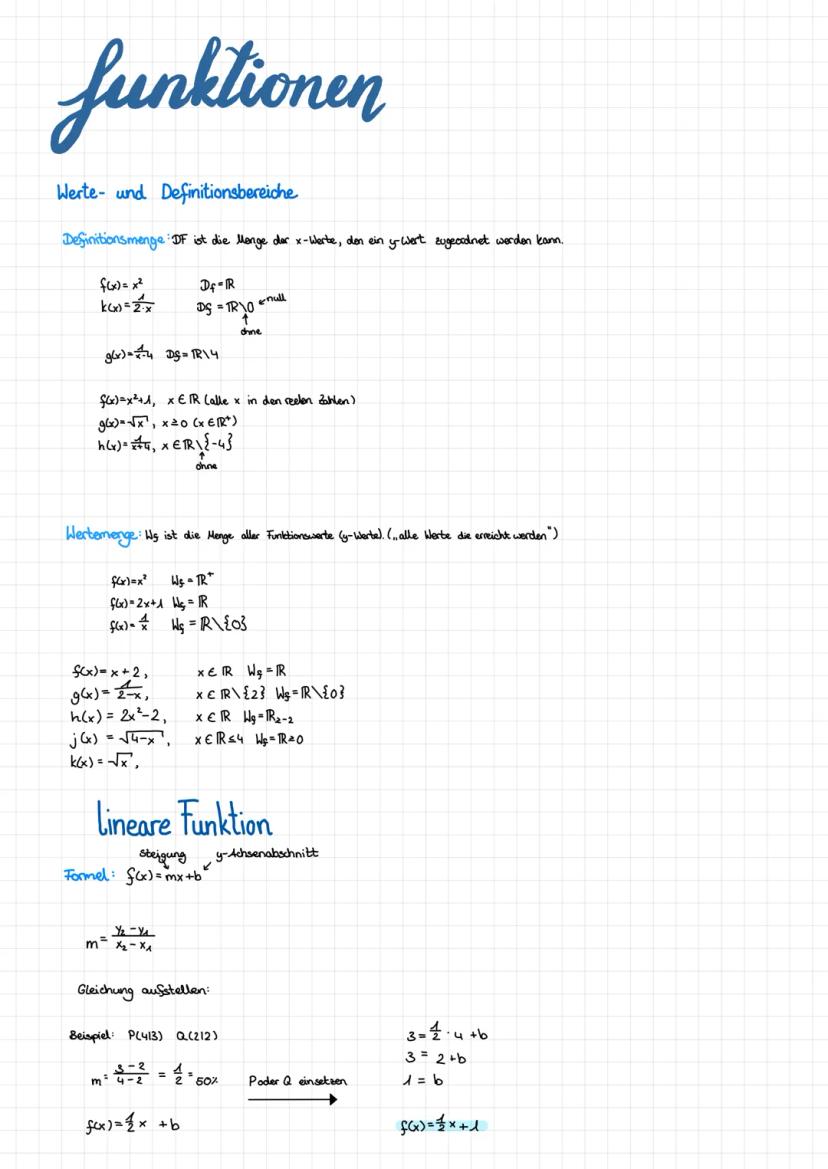 funktionen
Werte- und Definitionsbereiche
Definitionsmenge: DF ist die Menge der x-Werte, den ein y-Wert zugeordnet werden kann.
f(x) = x² Df = ℝ
k(x) = 1/2·x Df = ℝ\0 ← null
↑
ohne
g(x) = 1/x-4 Df = ℝ\4
f(x) = x²+1, x ∈ ℝ (alle x in den reelen Zahlen)
g(x) = √x, x ≥ 0 (x ∈ ℝ⁺)
h(x) = 1/x+4, x ∈ ℝ\{-4}
↑
ohne
Wertemenge: Wf ist die Menge aller Funktionswerte (y-Werte). („alle Werte die erreicht werden")
f(x) = x² Wf = ℝ⁺
f(x) = 2x+1 Wf = ℝ
f(x) = 1/x Wf = ℝ\{0}
f(x) = x + 2, x ∈ ℝ Wf = ℝ
g(x) = 1/2-x, x ∈ ℝ\{2} Wf = ℝ\{0}
h(x) = 2x²-2, x ∈ ℝ Wf = ℝ≥-2
j(x) = √4-x, x ∈ ℝ ≤ 4 Wf = ℝ ≥ 0
k(x) = √x,
lineare Funktion
steigung y-Achsenabschnitt
Formel: f(x) = mx+b
m = y₂ - y₁ / x₂ - x₁
Gleichung aufstellen:
Beispiel: P(4|3) Q(2|2)
m = 3-2/4-2 = 1/2 = 50%
f(x) = 1/2 x + b
P oder Q einsetzen
3 = 1/2 · 4 + b
3 = 2 + b
1 = b
f(x) = 1/2 x + 1